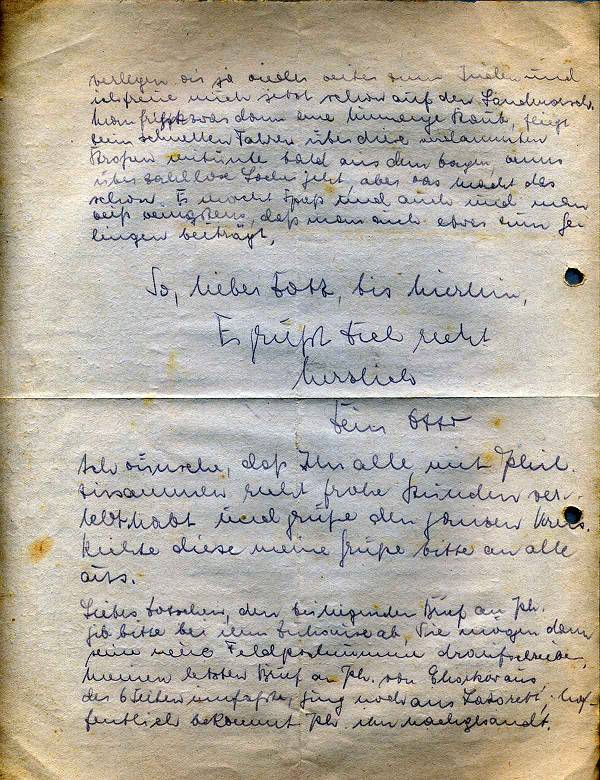 verlegen wir ja wieder weiter zum Süden und
ich freue mich jetzt schon auf den Landmarsch.
Man frißt zwar dann eine Menge Staub, fliegt
beim schnellen Fahren über die
Straßen mitunter bald aus dem Wagen, wenns
über zahllose Löcher geht, aber das macht das
schon. Es macht Spaß und auch und man
weiß wenigstens, daß man auch etwas zum Ge-
lingen beiträgt.
So, lieber, bis hierhin,
Es grüßt Dich recht
herzlich
Dein Otto
Ich wünsche, daß Ihr alle mit Phil.
zusammen recht frohe Stunden ver-
lebt habt und grüße den ganzen Kreis.
Richte diese meine Grüße bitte an alle
aus.
Liebes, den beiliegenden Brief an Ph.
gib bitte bei ihm Zuhause ab, Sie mögen dann
seine neue Feldpostnummer draufschreiben,
meinen letzten Brief an Ph. von Charkow aus
der 6 Seiten umfaßte, ging noch ans Lazarett, hof-
fentlich bekommt Ph. ihn nachgesandt.